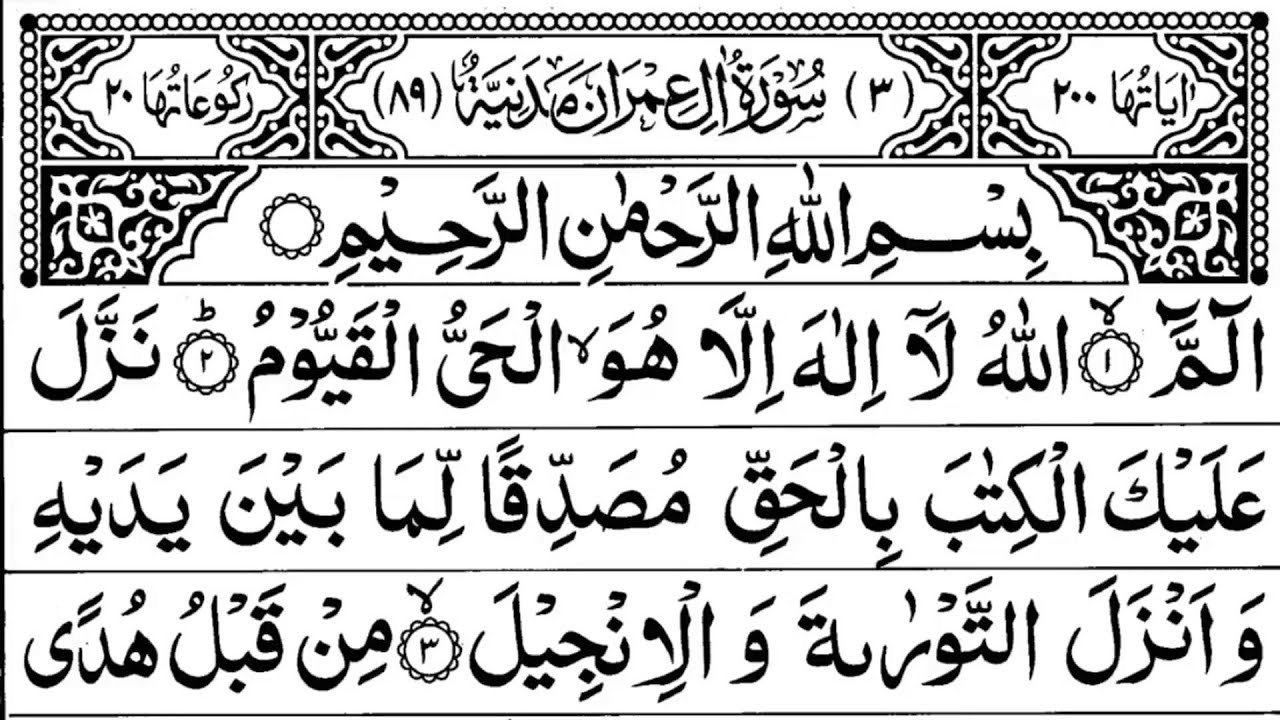 اٰيَاتُهَا ٢٠٠ (٣) سُوْرَةُ اٰلِ عِمْرَانَ مَدَنِيَّةٌ (٨٩) رُكُوْعَاتُهَا ٢٠
بِسْمِ اللّٰهِ الرَّحْمٰنِ الرَّحِيْمِ
الٓمّٓ ۙ﴿١﴾ اللّٰهُ لَآ اِلٰهَ اِلَّا هُوَ ۙ الْحَيُّ الْقَيُّوْمُ ؕ﴿٢﴾ نَزَّلَ
عَلَيْكَ الْكِتٰبَ بِالْحَقِّ مُصَدِّقًا لِّمَا بَيْنَ يَدَيْهِ
وَ اَنْزَلَ التَّوْرٰىةَ وَ الْاِنْجِيْلَ ۙ﴿٣﴾ مِنْ قَبْلُ هُدًى